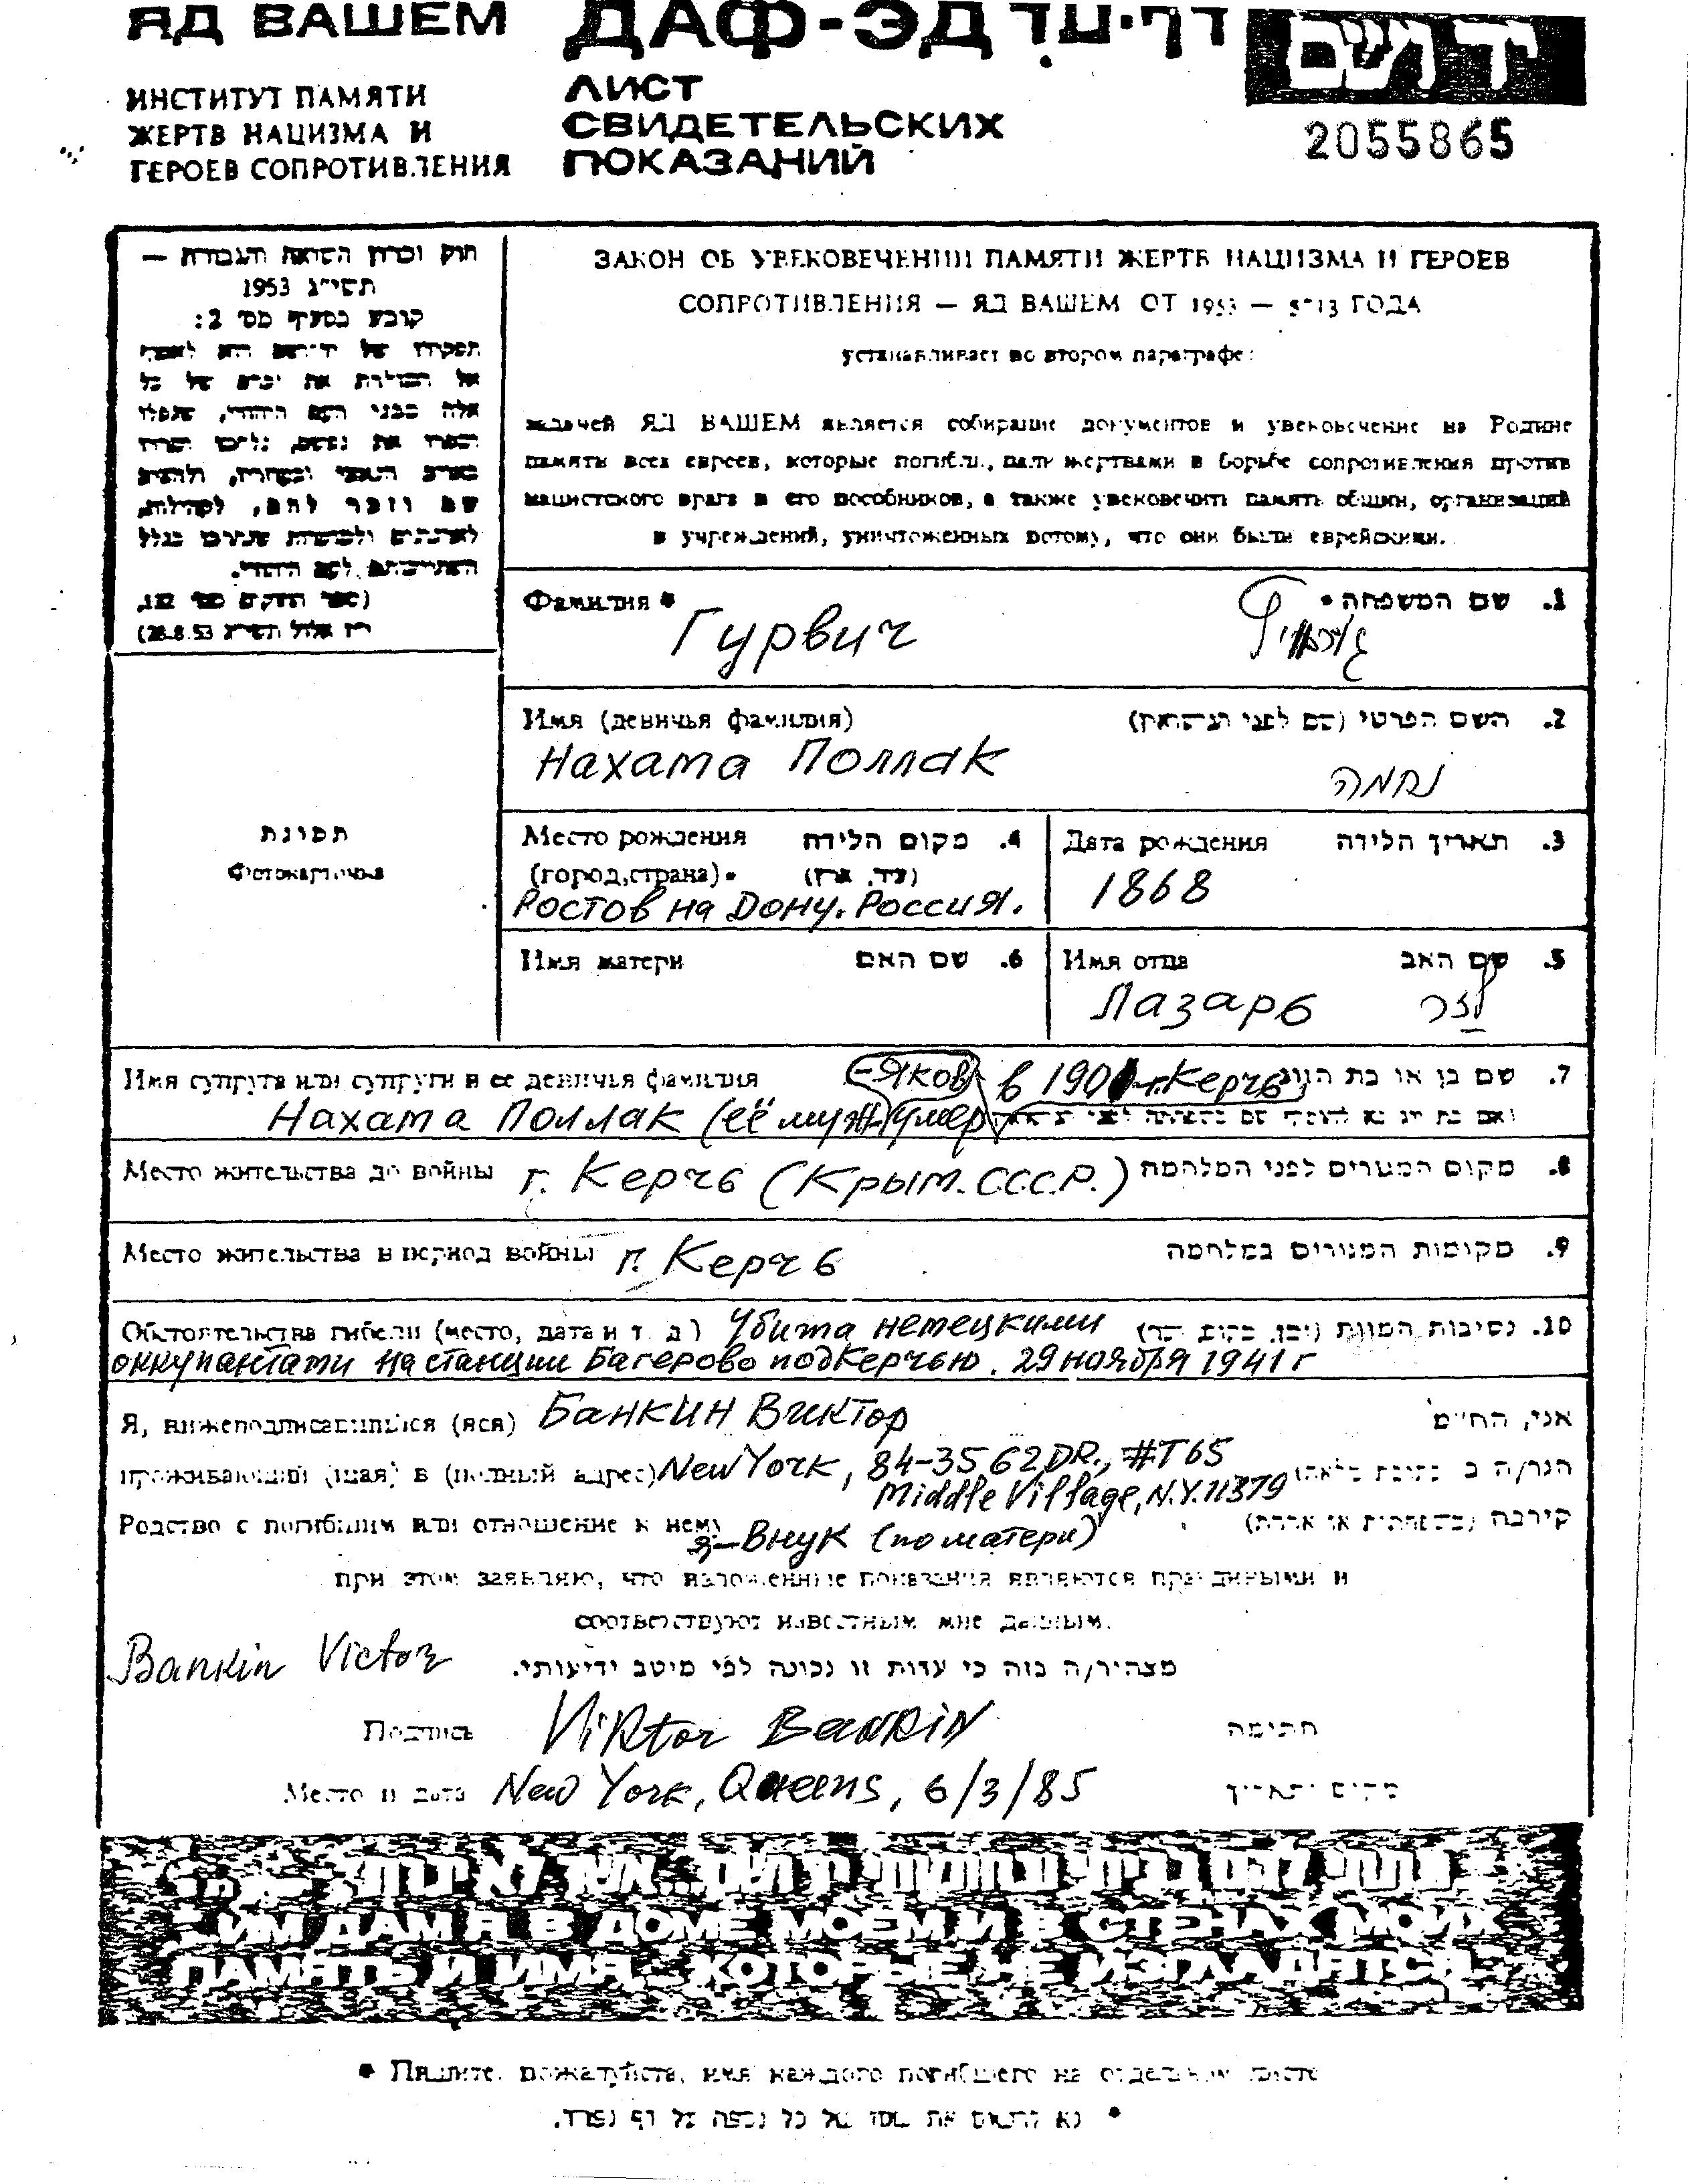 ЯД ВАШЕМ
ДАФ-ЭД דף-עד
ИНСТИТУТ ПАМЯТИ
ЖЕРТВ НАЦИЗМА И
ГЕРОЕВ СОПРОТИВЛЕНИЯ
ЛИСТ
СВИДЕТЕЛЬСКИХ
ПОКАЗАНИЙ
2055865
חוק זכרון השואה והגבורה —
תשי״ג 1953
קובע בסעיף מס׳ 2:
תפקידו של יד־ושם הוא לאסוף
אל המולדת את זכרם של כל
אלה מבני העם היהודי, שנפלו
ומסרו את נפשם, נלחמו ומרדו
באויב הנאצי ובעוזריו, ולהציב
שם וזכר להם, לקהילות,
לארגונים ולמוסדות שנחרבו בגלל
השתייכותם לעם היהודי.
(ספר החוקים מס׳ 132,
י״ז אלול תשי״ג 28.8.53)
ЗАКОН ОБ УВЕКОВЕЧЕНИИ ПАМЯТИ ЖЕРТВ НАЦИЗМА И ГЕРОЕВ
СОПРОТИВЛЕНИЯ — ЯД ВАШЕМ ОТ 1953 — 5713 ГОДА
устанавливает во втором параграфе:
задачей ЯД ВАШЕМ является собирание документов и увековечение на Родине
память всех евреев, которые погибли, пали жертвами в борьбе сопротивления против
нацистского врага и его пособников, а также увековечить память общин, организаций
и учреждений, уничтоженных потому, что они были еврейскими.
Фамилия * Гурвич 1. שם המשפחה *
Имя (девичья фамилия) 2. השם הפרטי (שם לפני הנישואין)
Нахата Поллак נחמה
תמונת
Фотокарточка
Место рождения 4. מקום הלידה
(город,страна) * (עיר, ארץ)
Ростов на Дону. Россия.
Дата рождения 3. תאריך הלידה
1868
Имя матери 6. שם האם
Имя отца 5. שם האב
Лазарь לזר
Имя супруга или супруги и ее девичья фамилия -Яков в г. Керчь 7. שם בן או בת הזוג
Нахата Поллак (её муж умер
Место жительства до войны г. Керчь (Крым. СССР.) 8. מקום המגורים לפני המלחמה
Место жительства в период войны г. Керчь 9. מקומות המגורים במלחמה
Обстоятельства гибели (место, дата и т. д.) Убита немецкими 10. נסיבות המוות (זמן, מקום וכו׳)
оккупантами на станции Багерово под Керчью. 29 ноября 1941 г
Я, нижеподписавшийся (аяся) Банкин Виктор אני, הח״מ
проживающий (щая) в (полный адрес) New York, 84-35 62 DR., #T65
Middle Village, N.Y. 11379
Родство с погибшим или отношение к нему я-Внук (по матери) קירבה (משפחתית או אחרת)
при этом заявляю, что изложенные показания являются правдивыми и
соответствуют известным мне данным.
Bankin Victor מצהיר/ה בזה כי עדות זו נכונה לפי מיטב ידיעותי.
Подпись Viktor Bankin חתימה
Место и дата New York, Queens, 6/3/85 מקום ותאריך
ИМ ДАМ Я В ДОМЕ МОЕМ И В СТЕНАХ МОИХ
ПАМЯТЬ И ИМЯ, КОТОРЫЕ НЕ ИЗГЛАДЯТСЯ
* Пишите, пожалуйста, имя каждого погибшего на отдельном листе
* נא לרשום את שמו של כל נספה על דף נפרד.